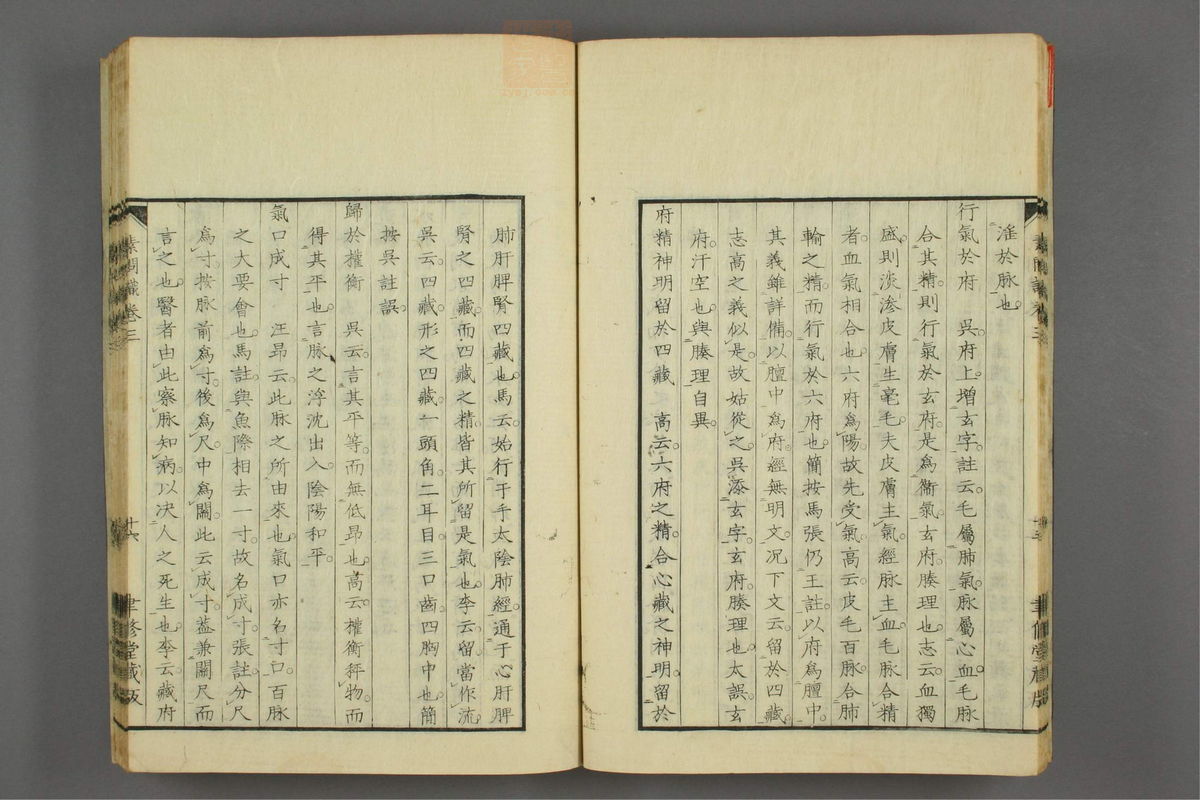 淫於脉也
行氣於府　吳府上增玄字註云毛屬肺氣脉屬心血毛脉
合其精則行氣於玄府是爲衞氣玄府腠理也志云血獨
盛則淡滲皮膚生毫毛夫皮膚主氣經脉主血毛脉合精
者血氣相合也六府爲陽故先受氣高云皮毛百脉合肺
輸之精而行氣於六府也簡按馬張仍王註以府爲膻中
其義雖詳備以膻中爲府經無明文況下文云留於四藏
志高之義似是故姑從之吳添玄字玄府腠理也太誤玄
府汗空也與腠理自異
府精神明留於四藏　高云六府之精合心藏之神明留於
肺肝脾腎四藏也馬云始行于手太陰肺經通于心肝脾
腎之四藏而四藏之精皆其所留是氣也李云留當作流
吳云四藏形之四藏一頭角二耳目三口齒四胸中也簡
按吳註誤
歸於權衡　吳云言其平等而無低昂也高云權衡秤物而
得其平也言脉之浮沈出入陰陽和平
氣口成寸　汪昂云此脉之所由來也氣口亦名寸口百脉
之大要會也馬註與魚際相去一寸故名成寸張註分尺
爲寸按脉前爲寸後爲尺中爲關此云成寸葢兼關尺而
言之也醫者由此察脉知病以决人之死生也李云藏府
素問識卷三
十六
聿修堂藏版